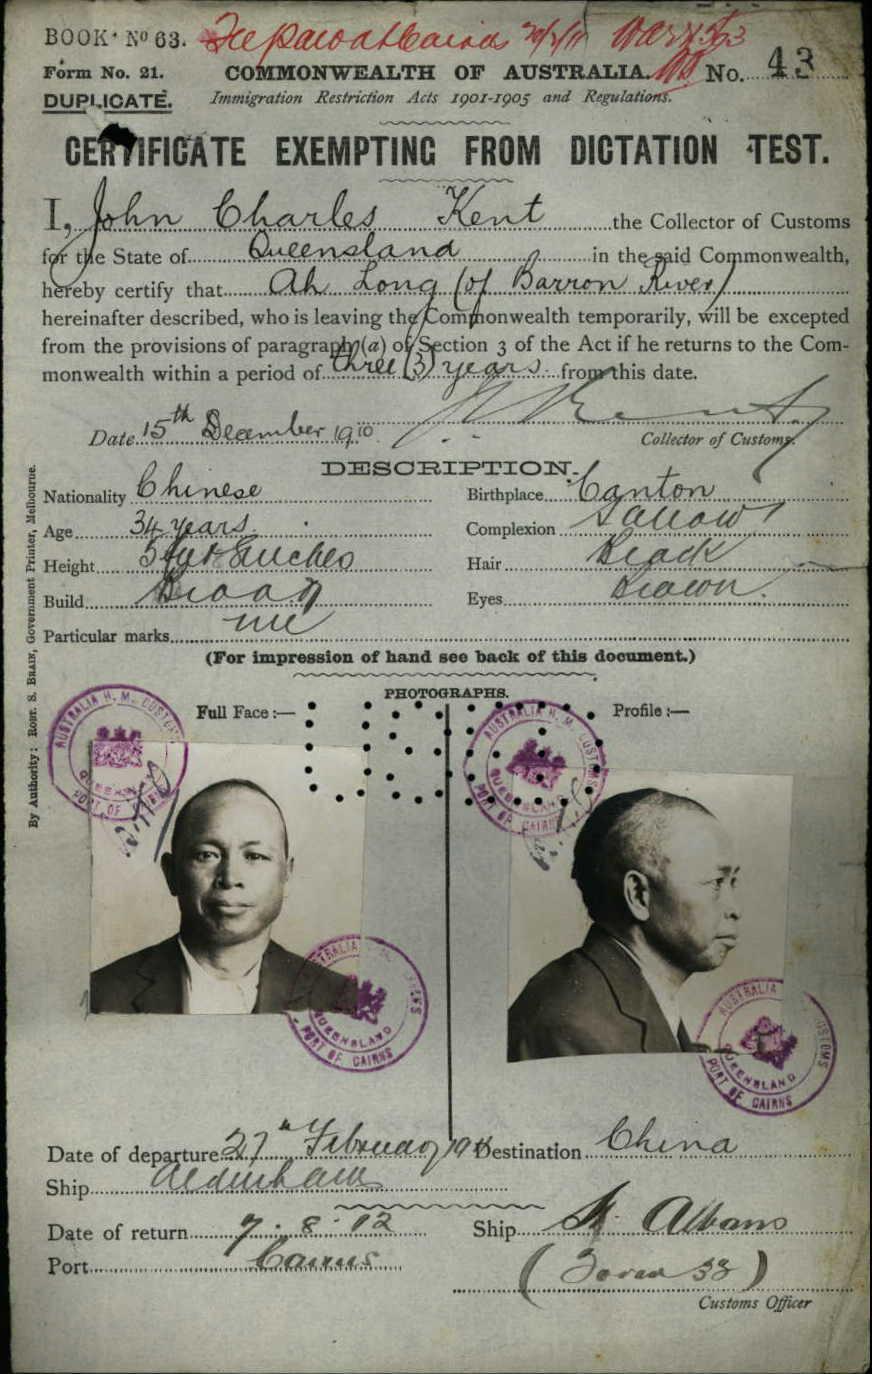 BOOK Nº 63. Fee paid at Cairns
Form No. 21. COMMONWEALTH OF AUSTRALIA. No. 43
DUPLICATE. Immigration Restriction Acts 1901-1905 and Regulations.
CERTIFICATE EXEMPTING FROM DICTATION TEST.
I, John Charles Kent the Collector of Customs
for the State of Queensland in the said Commonwealth,
hereby certify that Ah Long (of Barron River)
hereinafter described, who is leaving the Commonwealth temporarily, will be excepted
from the provisions of paragraph (a) of Section 3 of the Act if he returns to the Com-
monwealth within a period of three (3) years from this date.
Date 15th December 1910 Kent
Collector of Customs.
DESCRIPTION.
Nationality Chinese Birthplace Canton
Age 34 years Complexion Sallow
Height 5 feet inches Hair Black
Build Broad Eyes Brown
Particular marks nil
(For impression of hand see back of this document.)
PHOTOGRAPHS.
Full Face :— Profile :—
AUSTRALIA H. M. CUSTOMS QUEENSLAND PORT OF CAIRNS
AUSTRALIA H. M. CUSTOMS QUEENSLAND PORT OF CAIRNS
AUSTRALIA QUEENSLAND PORT OF CAIRNS
AUSTRALIA CUSTOMS QUEENSLAND PORT OF CAIRNS
By Authority: ROBT. S. BRAIN, Government Printer, Melbourne.
Date of departure 27th February 1911 Destination China
Ship Aldenham
Date of return 7.8.12 Ship St. Albans
Port Cairns
Customs Officer